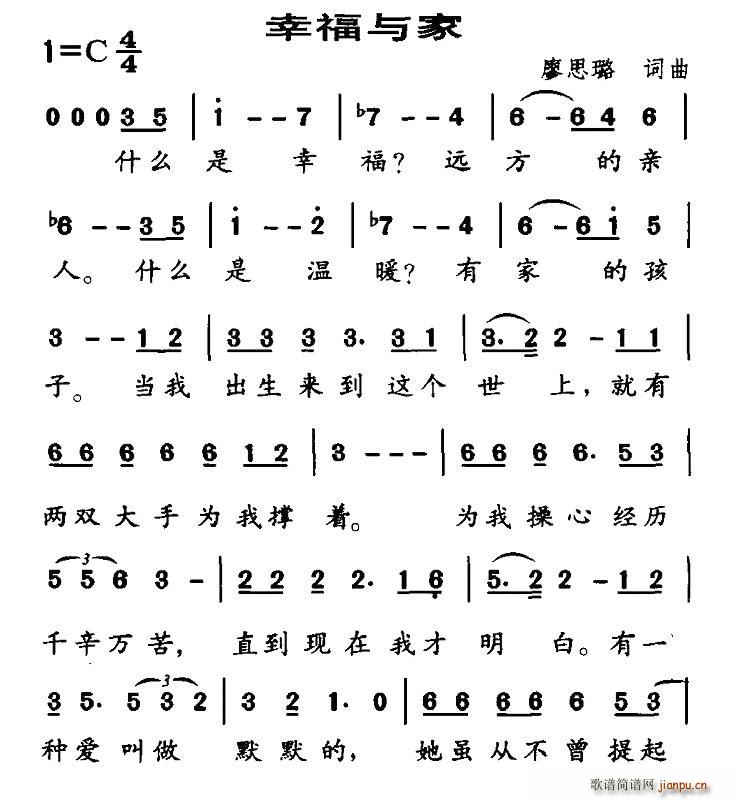 幸福与家
1=C 4/4
廖思璐 词曲
0 0 0 3 5 | i - - 7 | ♭7 - - 4 | 6 - 6 4 6 |
什么是幸福？远方的亲
♭6 - - 3 5 | i - - 2̇ | ♭7 - - 4 | 6 - 6 i 5 |
人。什么是温暖？有家的孩
3 - - 1 2 | 3 3 3 3 3. 3 1 | 3. 2 2 - 1 1 |
子。当我出生来到这个世上，就有
6 6 6 6 6 1 2 | 3 - - - | 6 6 6 6. 5 3 |
两双大手为我撑着。为我操心经历
5 5 6 3 - | 2 2 2 2. 1 6̣ | 5. 2 2 - 1 2 |
千辛万苦，直到现在我才明白。有一
3 5. 5 3 2 | 3 2 1. 0 | 6 6 6 6 6 5 3 |
种爱叫做默默的，她虽从不曾提起
歌谱简谱网 jianpu.cn